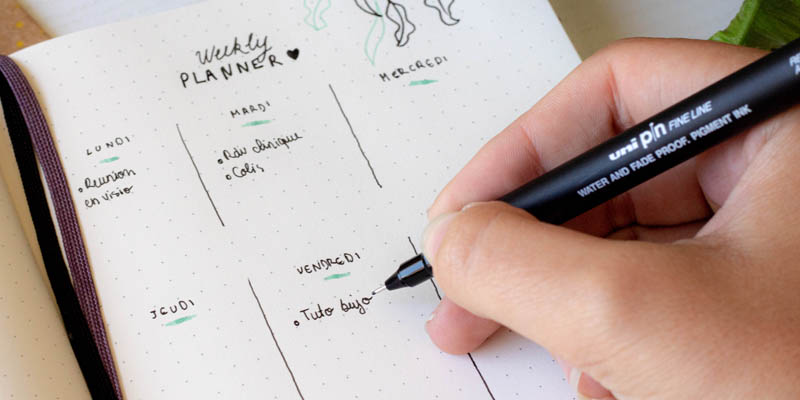 Weekly
PLANNER
LUNDI
• Réunion
en visio
MARDI
• Rdv clinique
• Colis
MERCREDI
JEUDI
VENDREDI
• Tuto bujo
uni pin FINE LINE
WATER AND FADE PROOF. PIGMENT INK